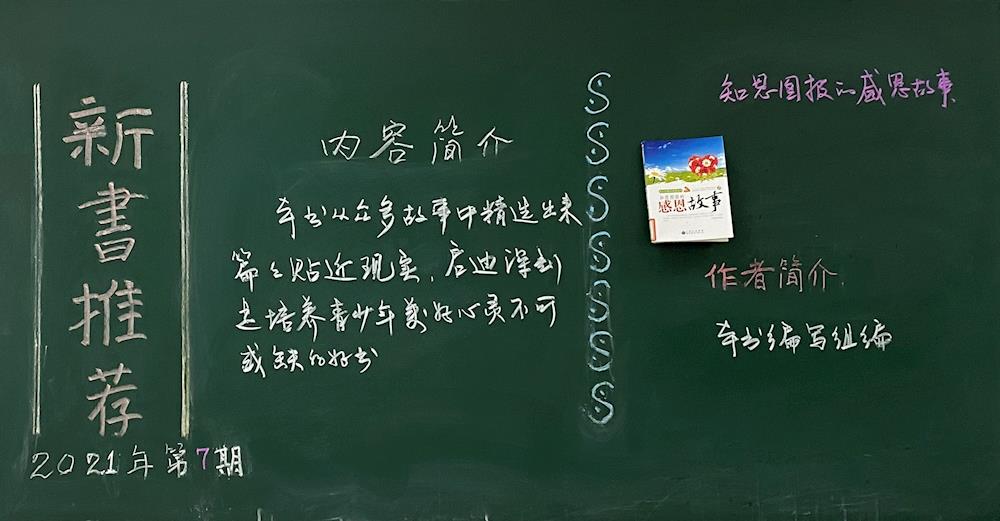 新書推荐
2021年第7期
内容简介
本书从众多故事中精选出来
篇々贴近现实，启迪深刻
是培养青少年美好心灵不可
或缺的好书
S
S
S
S
S
S
S
知恩图报的感恩故事
感恩故事
作者简介：
本书编写组编